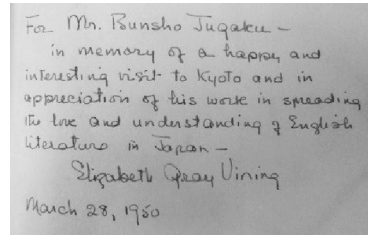 For Mr. Bunsho Jugaku –
in memory of a happy and
interesting visit to Kyoto and in
appreciation of his work in spreading
the love and understanding of English
literature in Japan –
Elizabeth Gray Vining
March 28, 1950